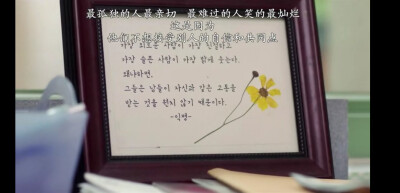 最孤独的人最亲切 最难过的人笑的最灿烂
这是因为
他们不想接受别人的自怜和共同点
가장 외로운 사람이 가장 친절하고
가장 슬픈 사람이 가장 밝게 웃는다.
왜냐하면,
그들은 남들이 자신과 같은 고통을
받는 것을 원치 않기 때문이다.
-익명-